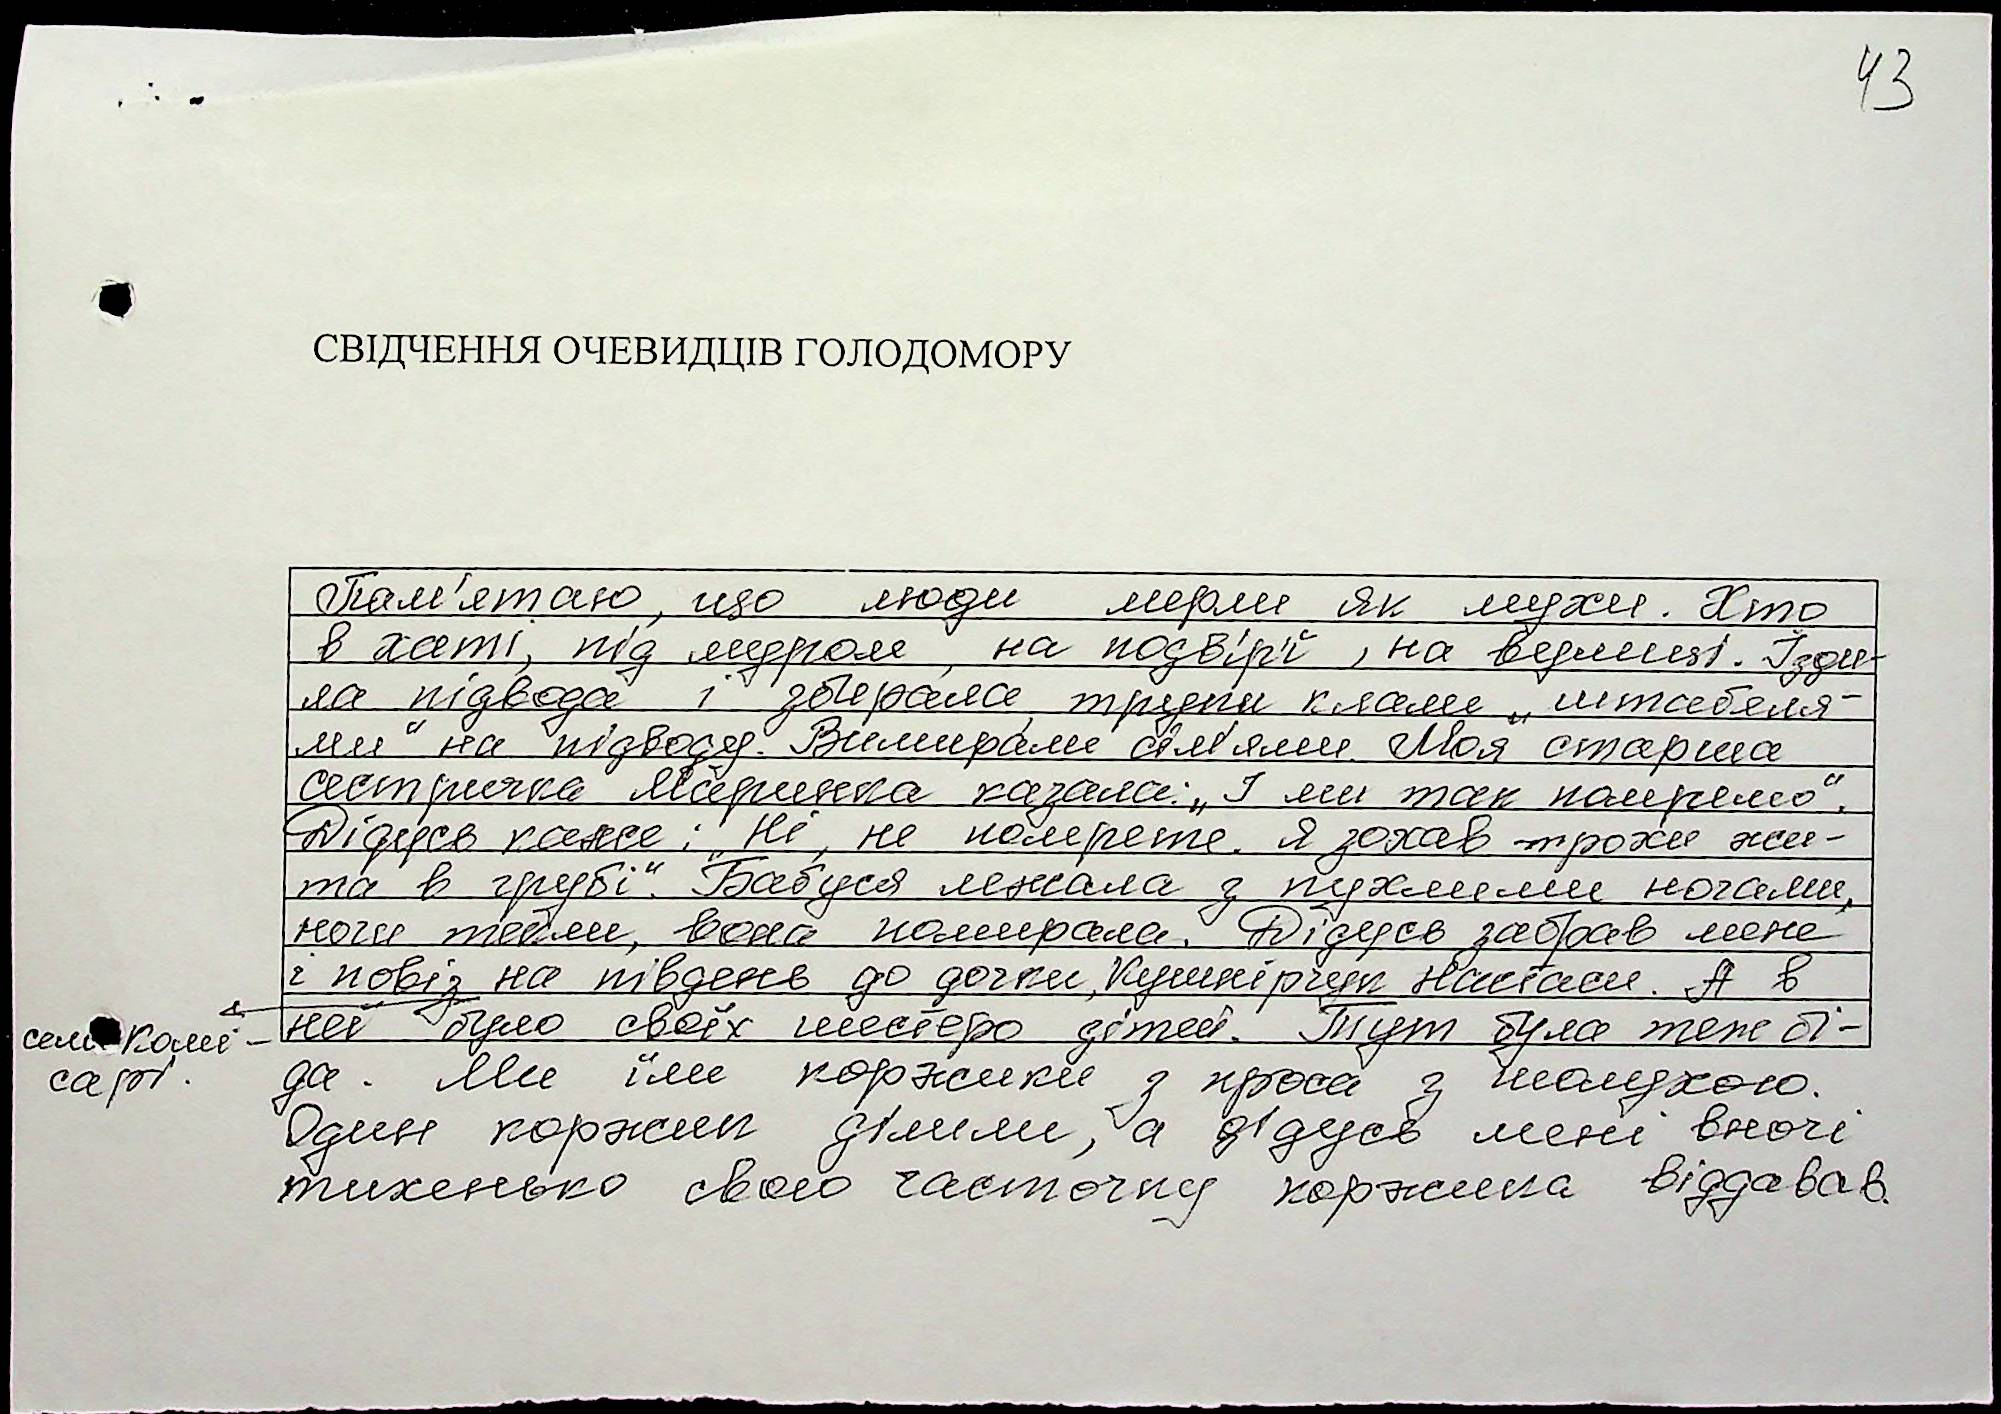 43
СВІДЧЕННЯ ОЧЕВИДЦІВ ГОЛОДОМОРУ
Пам'ятаю, що люди мерли як мухи. Хто
в хаті, під муром, на подвір'ї, на вулиці. Їзди-
ла підвода і збирала, трупи клали „штабеля-
ми" на підводу. Вимирали сім'ями. Моя старша
сестричка Маринка казала: „І ми так помремо".
Дідусь каже: „Ні, не помрете. Я зохав трохи жи-
та в грубі". Бабуся лежала з пухлими ногами,
ноги текли, вона помирала. Дідусь забрав мене
і повіз на південь до дочки, Кушнірчук Настаси. А в
неї було своїх шестеро дітей. Тут була теж бі-
село Комі-
сарі.
да. Ми їли коржики з проса з шолухою.
Один коржик ділили, а дідусь мені вночі
тихенько свою часточку коржика віддавав.